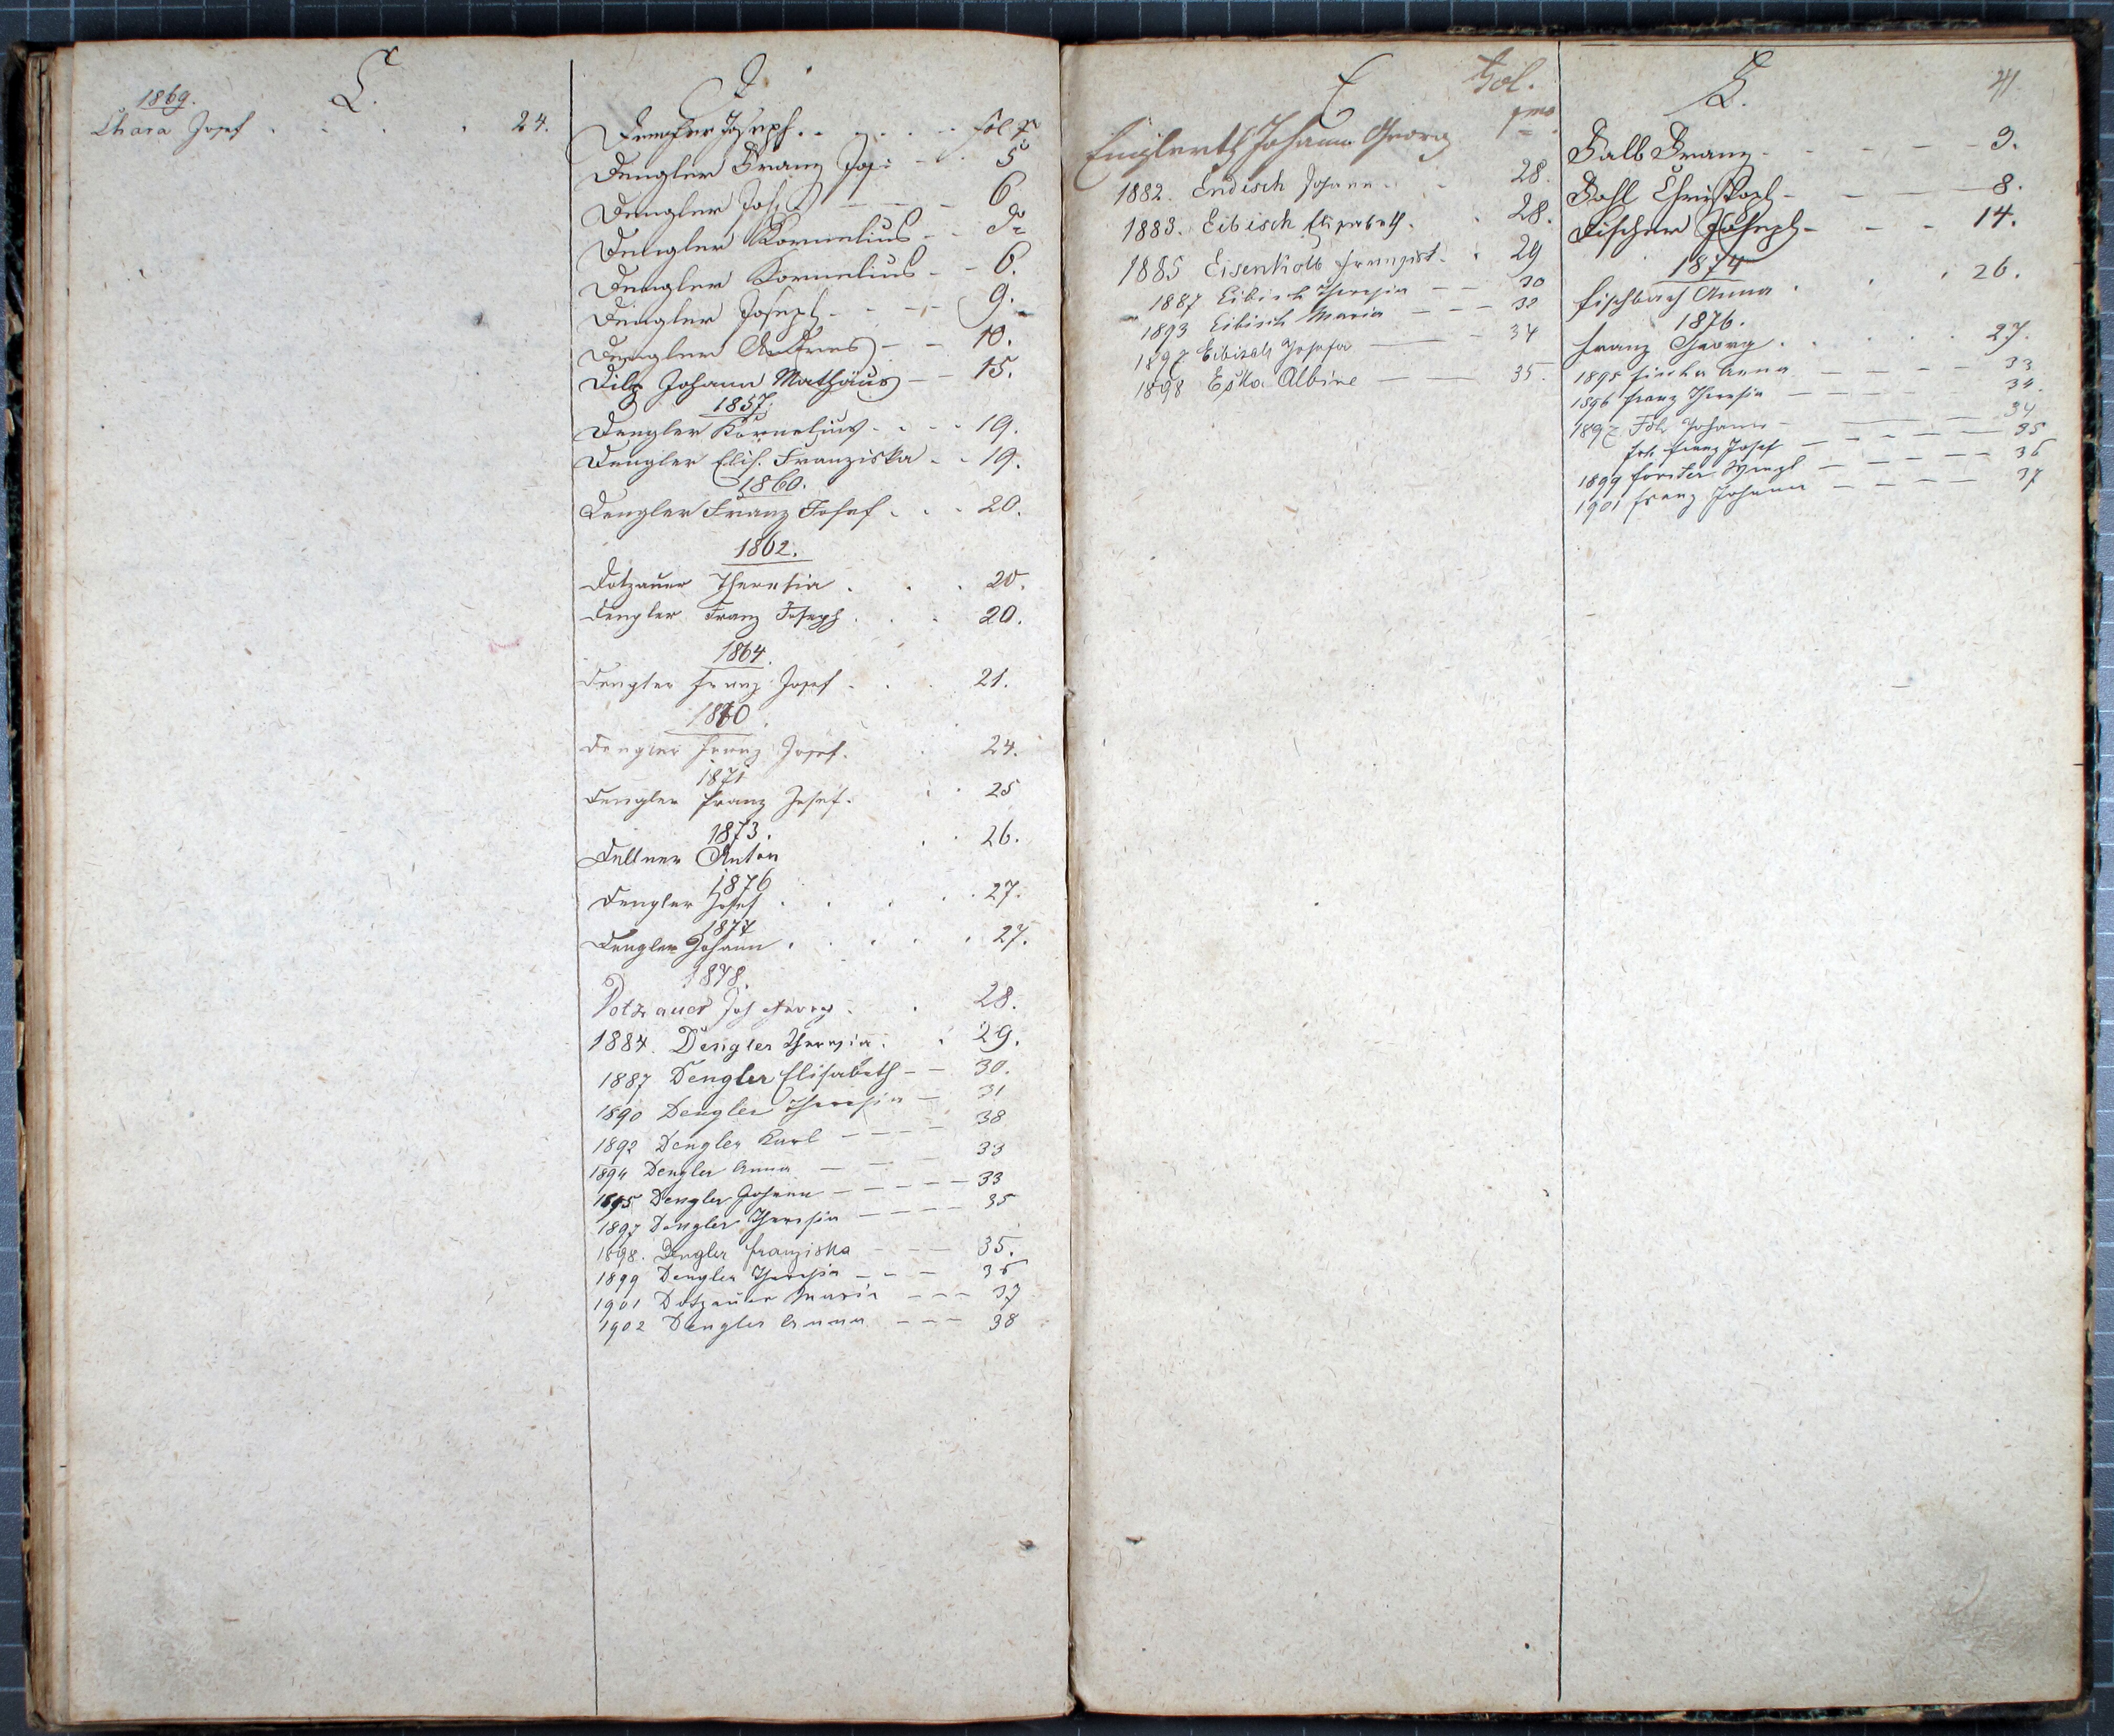 C.
1869.
Chara Josef . . . . 24.
D.
Joseph. . . . . fol
Dengler Franz Jos: - - . 5
Dengler Jos - - - 6
Dengler Kornelius - - do
Dengler Kornelius - - 6.
Dengler Joseph - - - - 9.
Dengler Andreas - - 10.
Johann Mathäus - - 15.
1857.
Dengler Kornelius - . - - 19.
Dengler Elis. Franziska - - 19.
1860.
Dengler Franz Josef . . . 20.
1862.
Dotzauer Theresia . . . 20.
Dengler Franz Joseph . . . 20.
1864.
Dengler Franz Josef . . . 21.
1870.
Dengler Franz Josef. . 24.
1871
Dengler Franz Josef. . . 25
1873.
Dellner Anton . . 26.
1876
Dengler Josef . . . . 27.
1877
Dengler Johann . . . . . 27.
1878.
Dotzauer Joh Georg . . 28.
1884. Dengler Theresia. . 29.
1887 Dengler Elisabeth - - 30.
1890 Dengler Theresia - 31
1892 Dengler Karl - - - - 38
1894 Dengler Anna - - - 33
1895 Dengler Johann - - - - - 33
1897 Dengler Theresia - - - - 35
1898. Dengler Franziska - - - 35.
1899 Dengler Theresia - - - 36
1901 Dotzauer Maria - - - 37
1902 Dengler Anna - - - 38
E
Fol.
Englerth Johann Georg 1mo
1882. Endisch Johann. . 28.
1883. Eibisch Elisabeth. . 28.
1885 Eisenkolb Franzist. . 29
1887 Eibisch Theresia - - 30
1893 Eibisch Maria - - - 32
1897 Eibisch Josefa - - 34
1898 Eska Albine - - 35.
F.
41.
Falb Franz - - - - - 3.
Christoph - - - 8.
Fischer Joseph - - - 14.
1874
Fischbach Anna . . . 26.
1876.
Franz Georg . . . . . 27.
1895 Anna - - - - 33
1896 Franz Theresia - - - - 34.
1897 Johann - - - 34
Franz Josef - - - - - 35
1899 Forster Wenzl - - - - - 36
1901 Franz Johann - - - - 37